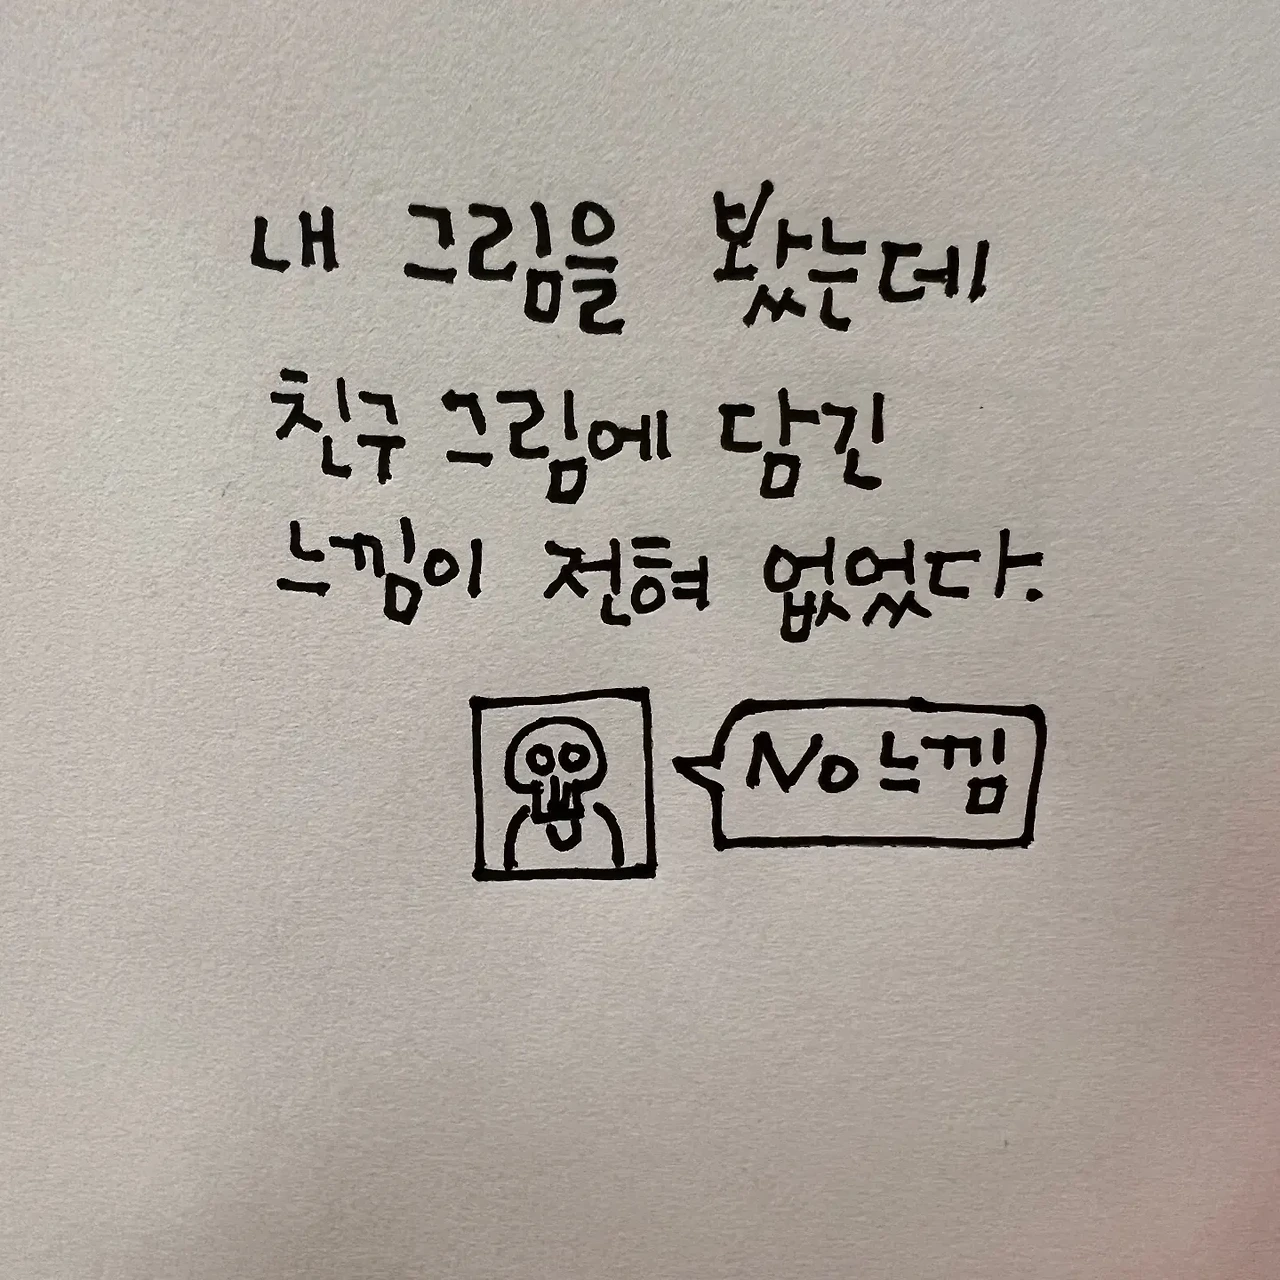 내 그림을 봤는데
친구 그림에 담긴
느낌이 전혀 없었다.
No 느낌